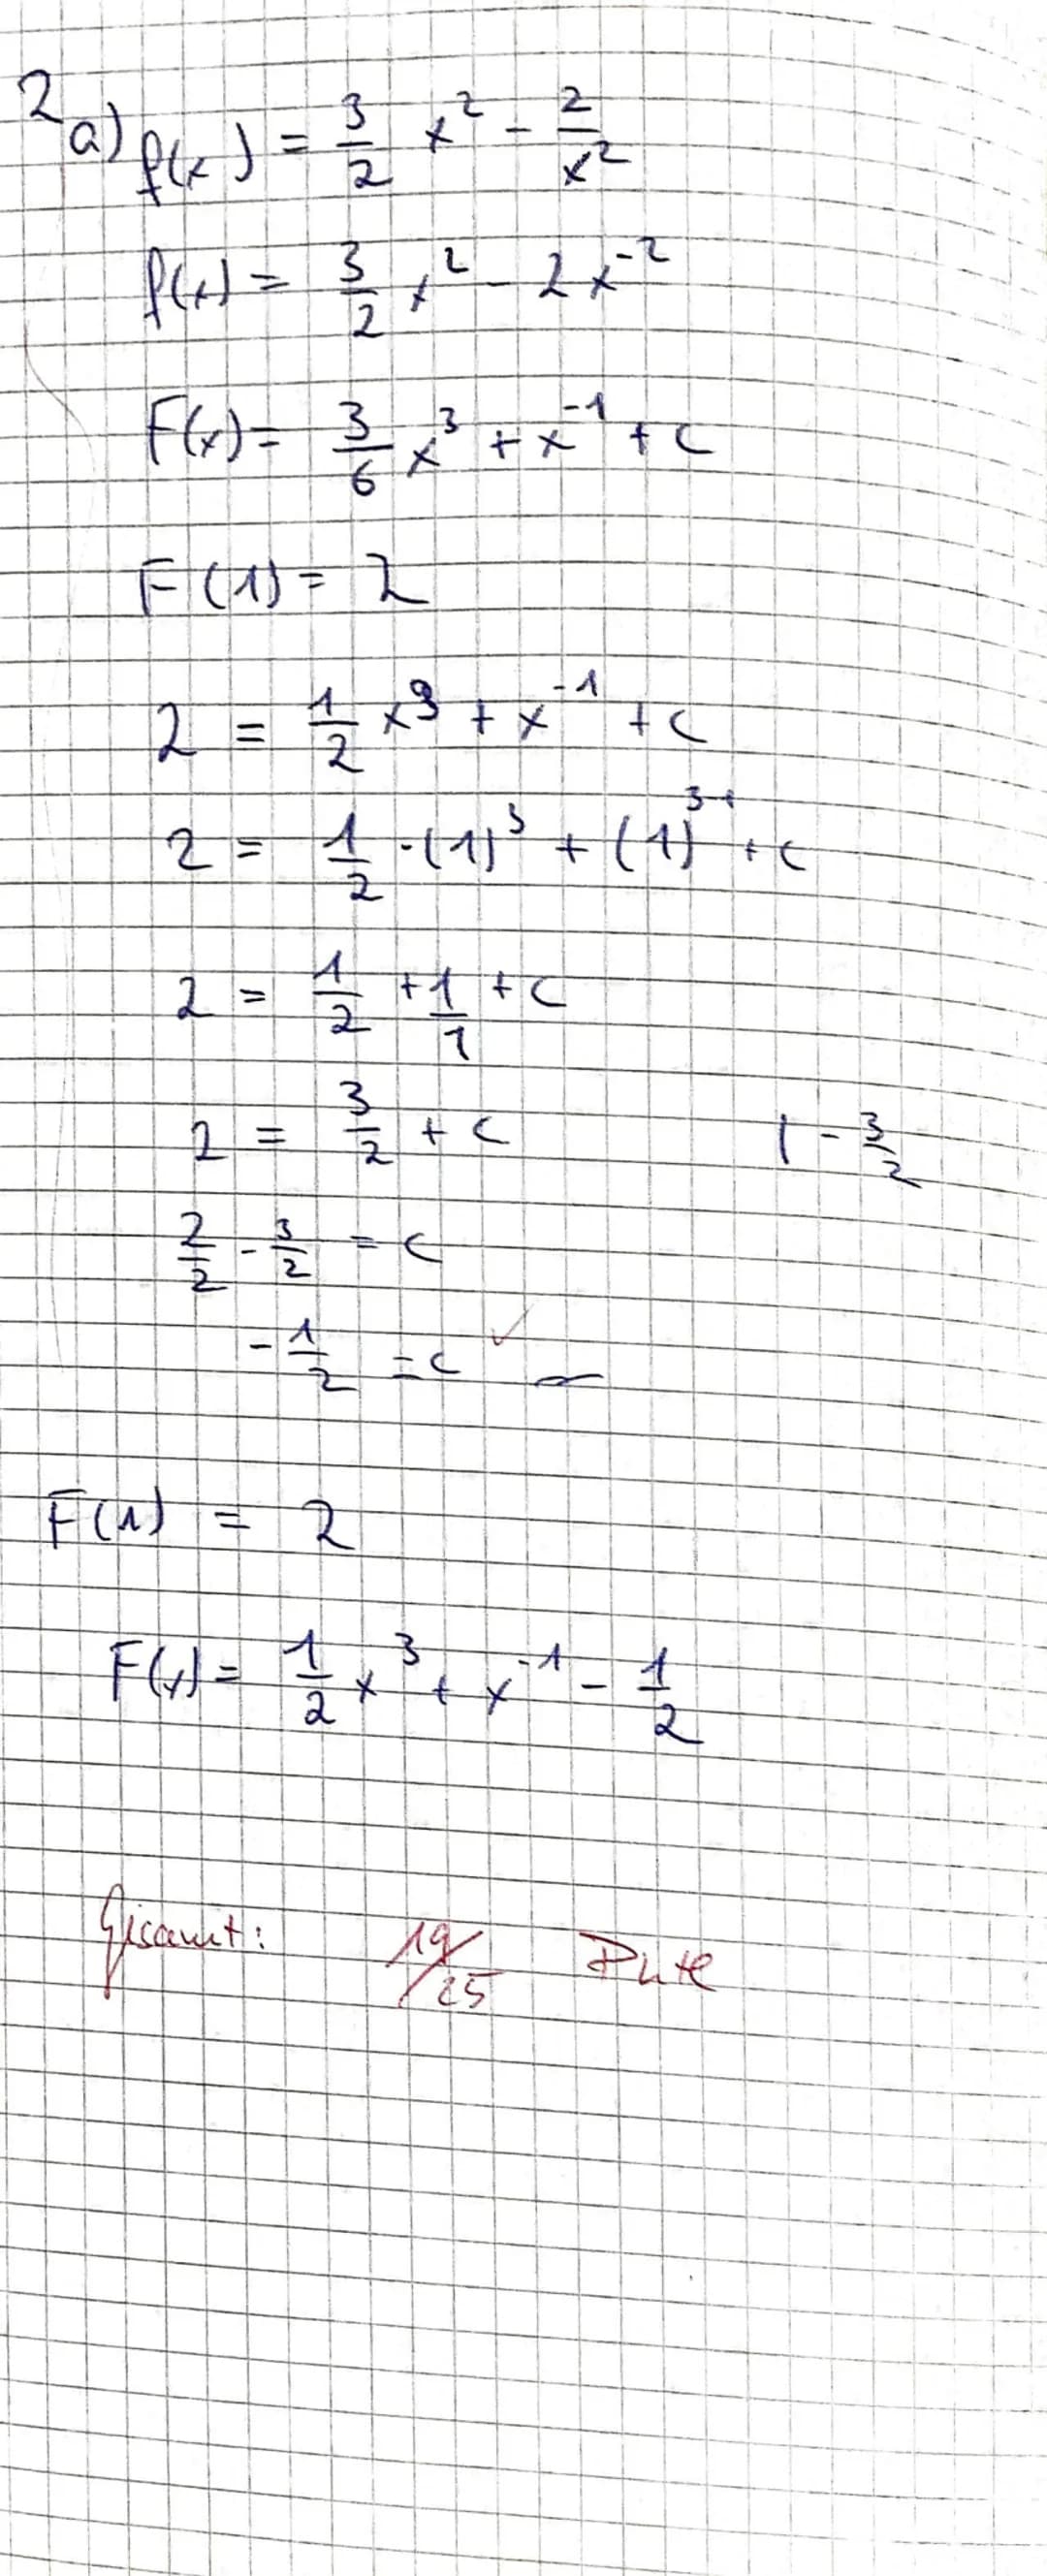 2a) f(x) = 3/2 x² - 2/x²
f(x) = 3/2 x² - 2x⁻²
F(x) = 3/6 x³ + x⁻¹ + c
F(1) = 2
2 = 1/2 x³ + x⁻¹ + c
2 = 1/2 · (1)³ + (1) + c
2 = 1/2 + 1/1 + c
2 = 3/2 + c | - 3/2
2/2 - 3/2 = c
- 1/2 = c ✓
F(1) = 2
F(x) = 1/2 x³ + x⁻¹ - 1/2
Gesamt: 19/25